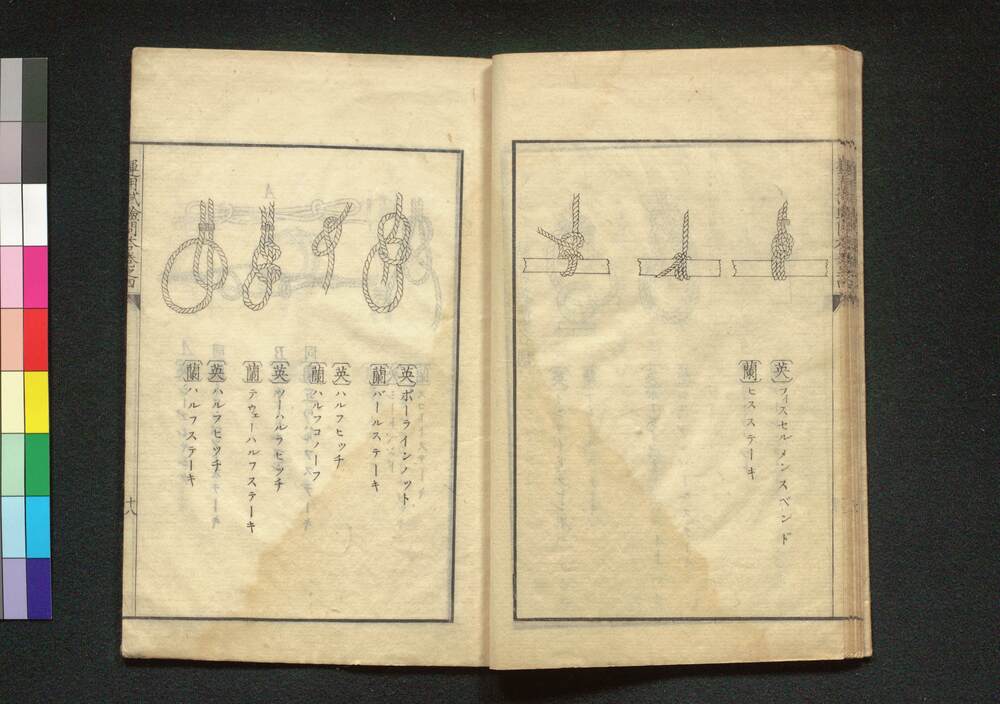 英 フィスセルメンスベンド
蘭 ヒスステーキ
英 ボーラインノット
蘭 バールステーキ
英 ハルフヒッチ
蘭 ハルフコノーフ
英 ツーハルフヒッチ
蘭 テウェーハルフステーキ
英 ハルフヒッチ
蘭 ハルフステーキ
十八